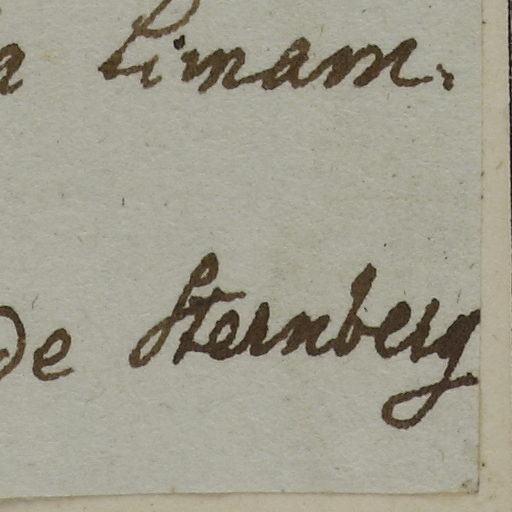 Limam.
de Sternberg